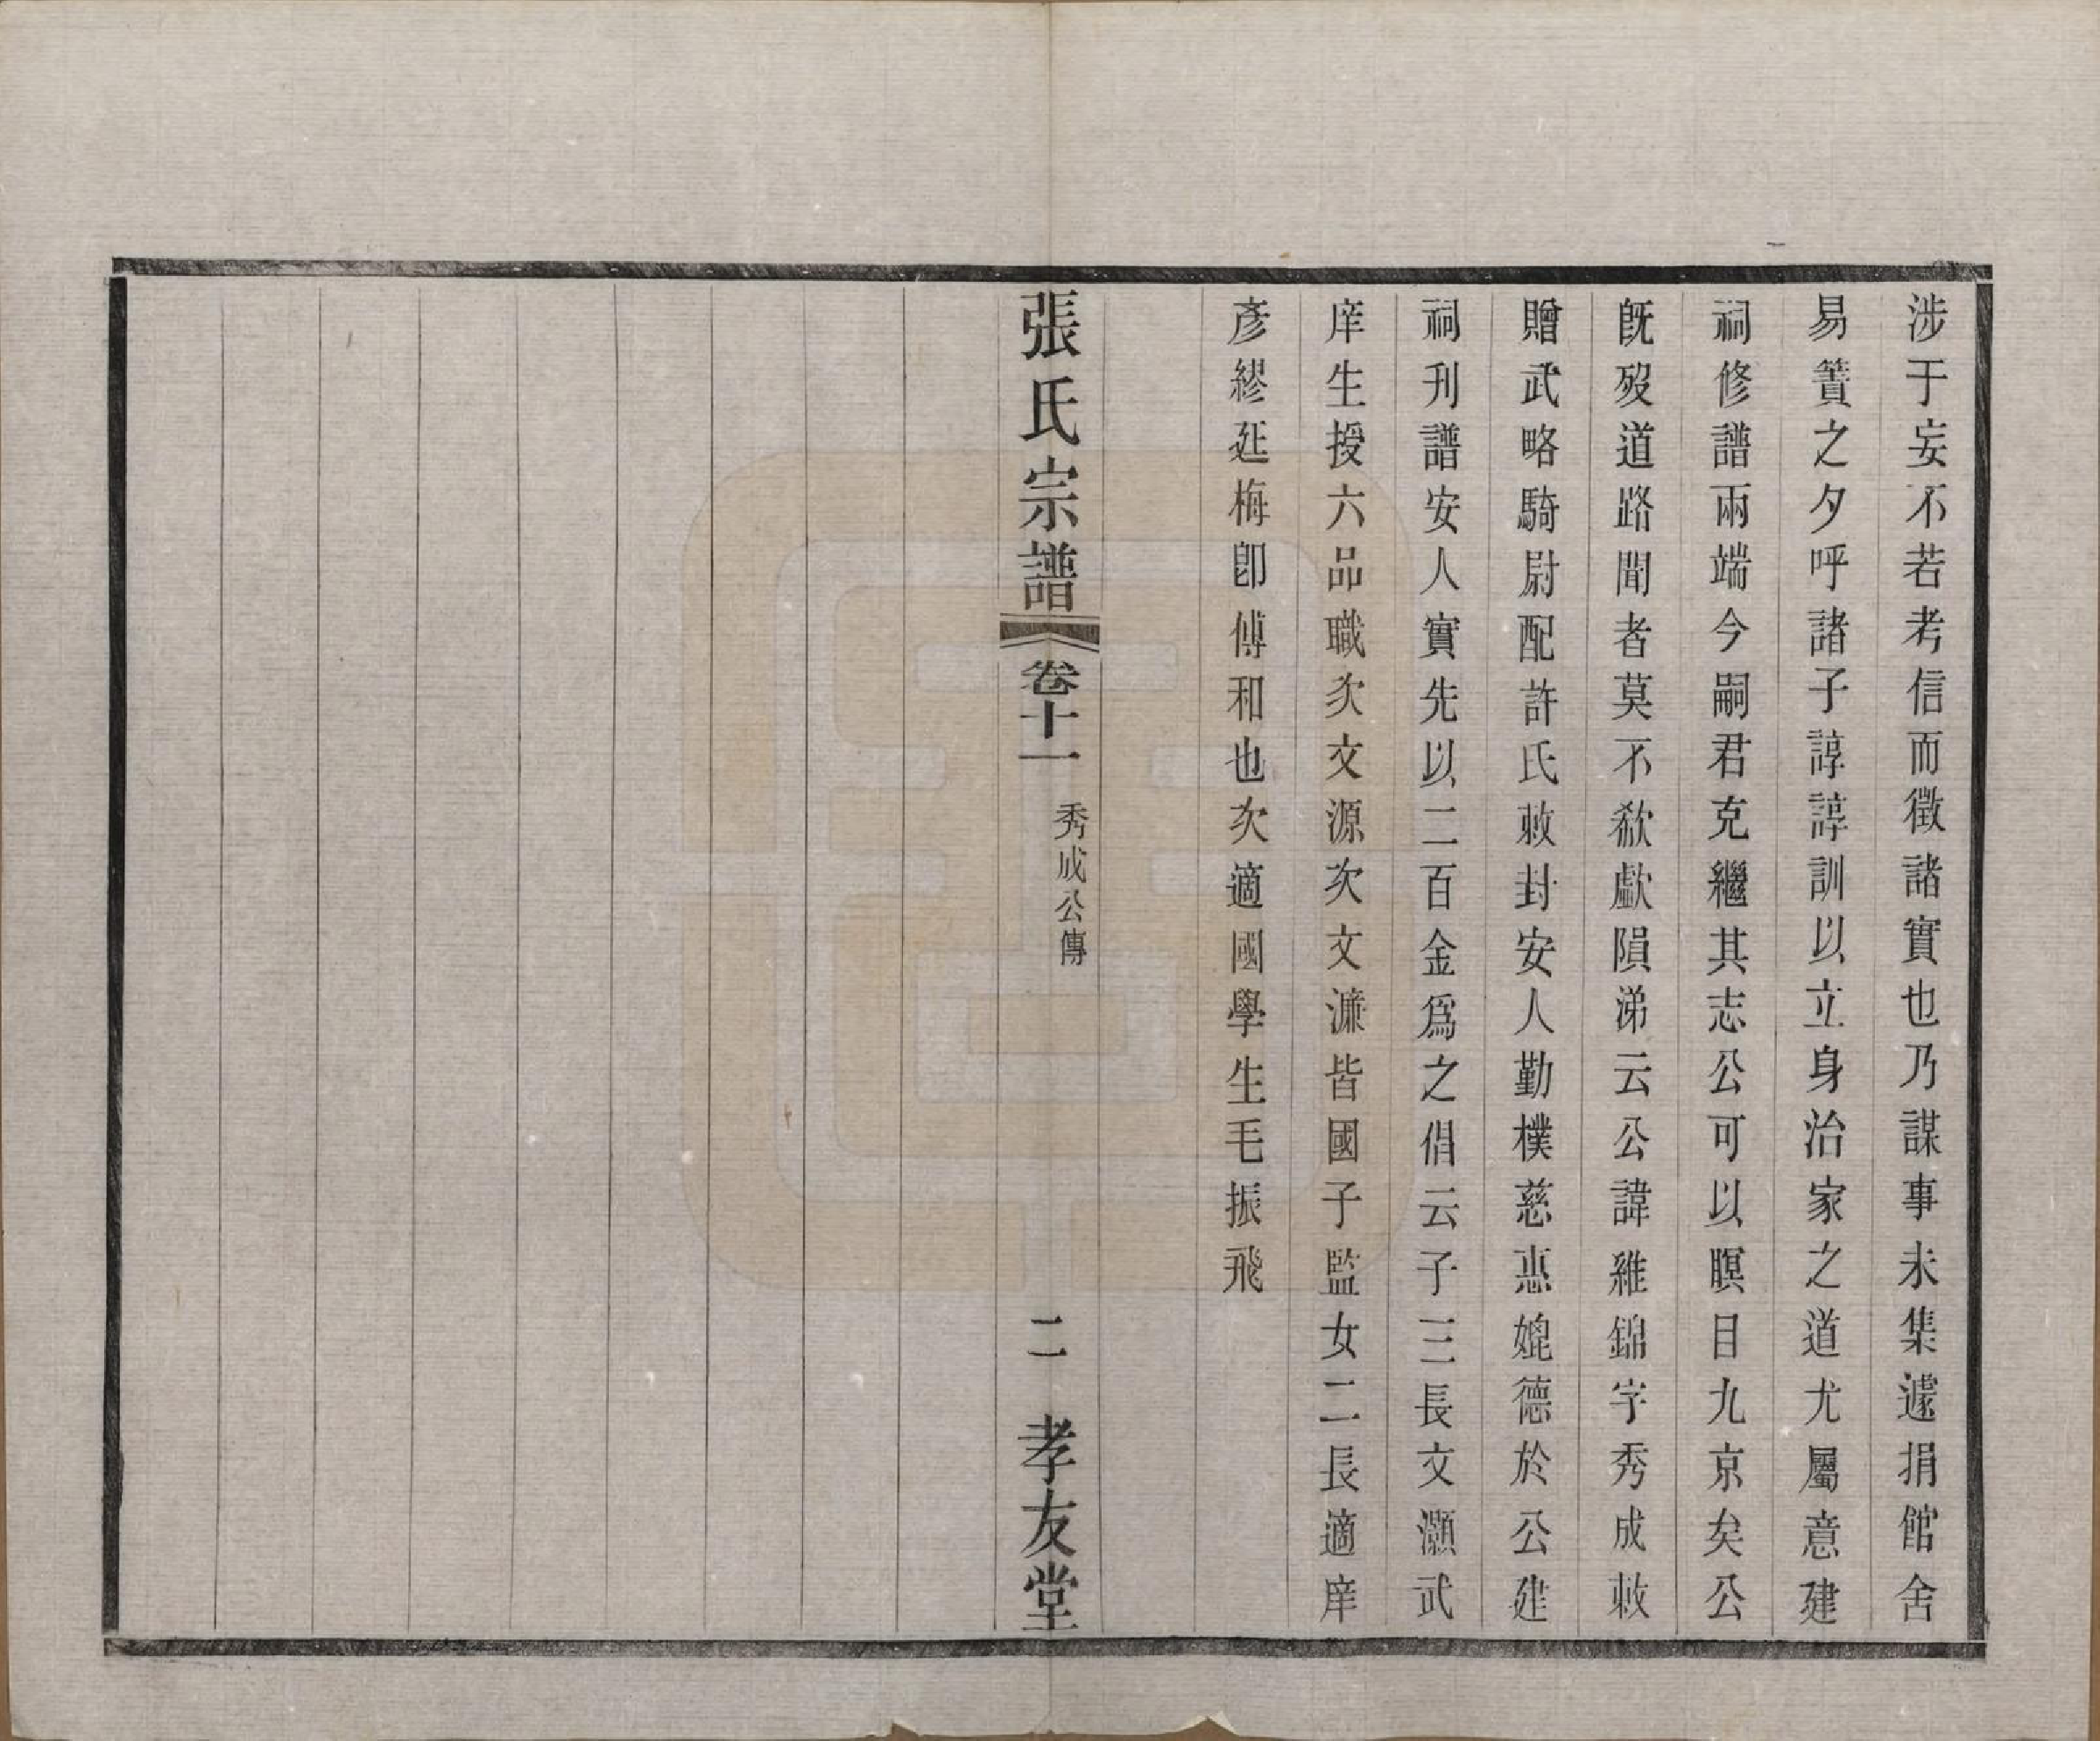 涉于妄不若考信而徵諸實也乃謀事未集遽捐館舍
易簀之夕呼諸子諄諄訓以立身治家之道尤屬意建
祠修譜兩端今嗣君克繼其志公可以瞑目九京矣公
旣歿道路聞者莫不欷歔隕涕云公諱維錦字秀成敕
贈武略騎尉配許氏敕封安人勤樸慈惠媲德於公建
祠刋譜安人實先以二百金爲之倡云子三長文灝武
庠生授六品職次文源次文濂皆國子監女二長適庠
彥繆延梅卽傅和也次適國學生毛振飛
張氏宗譜
卷十一
秀成公傳
二
孝友堂